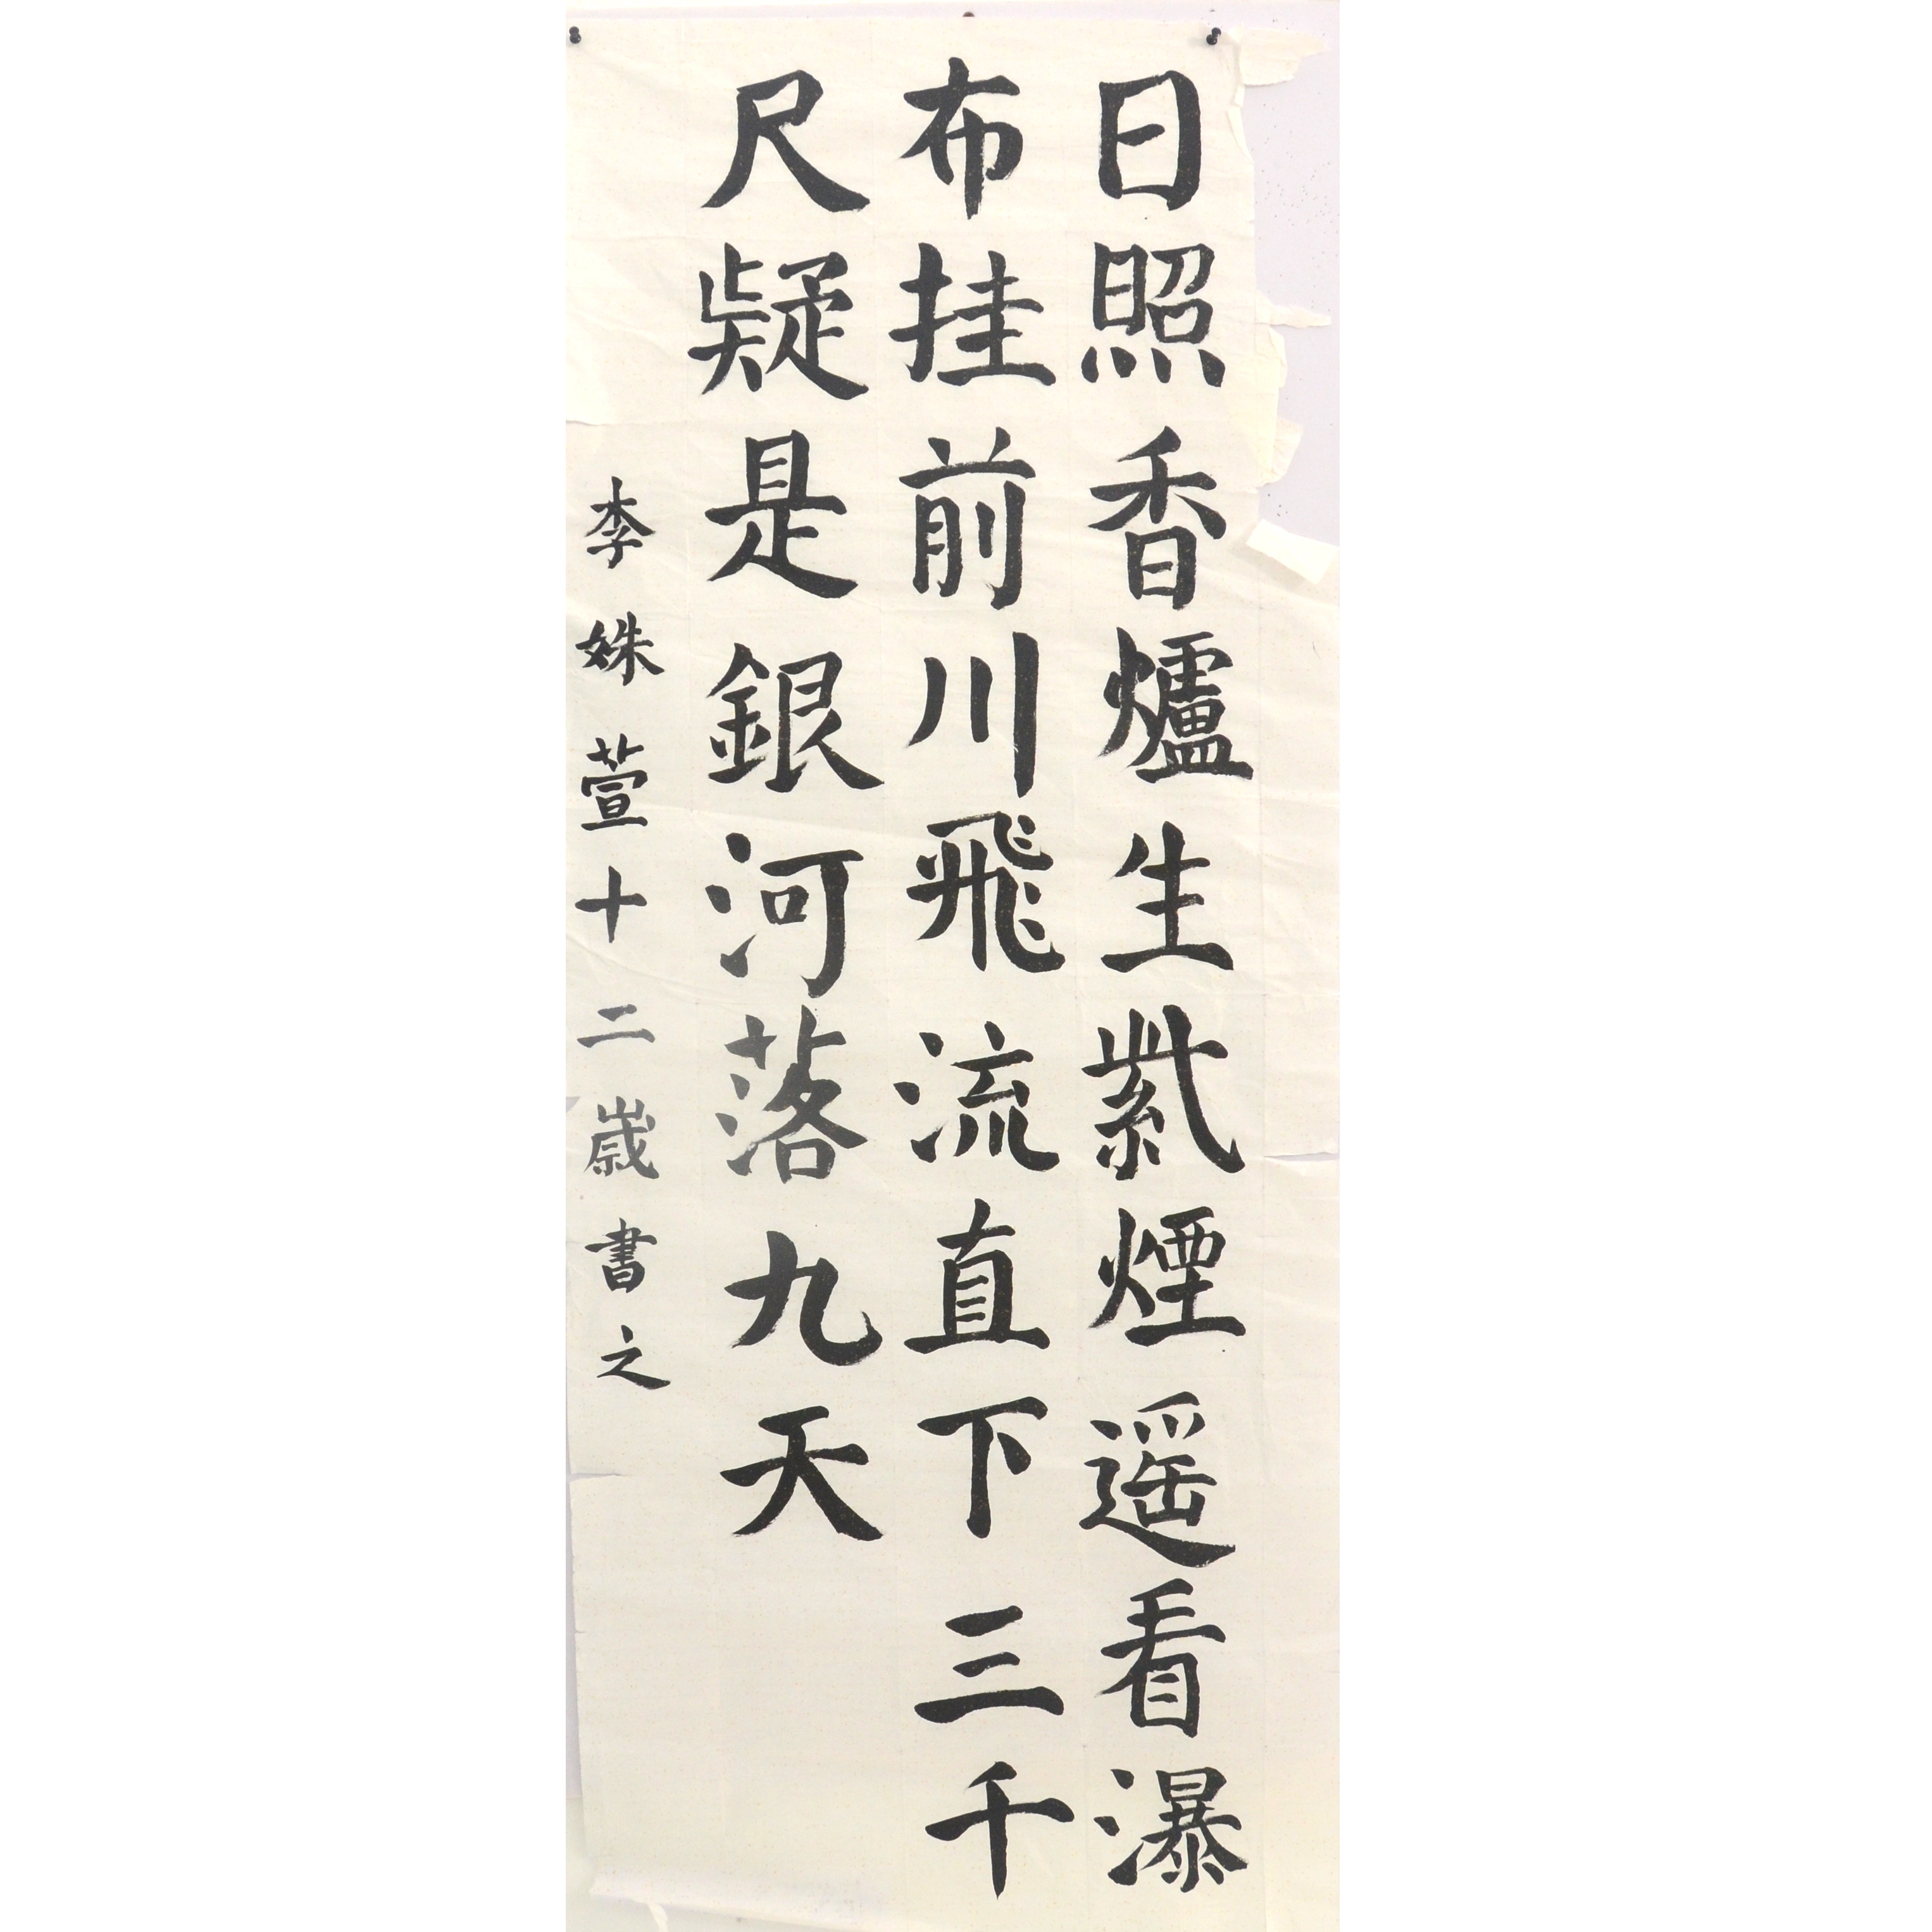 日照香爐生紫煙遥看瀑
布挂前川飛流直下三千
尺疑是銀河落九天
李姝萱十二歲書之